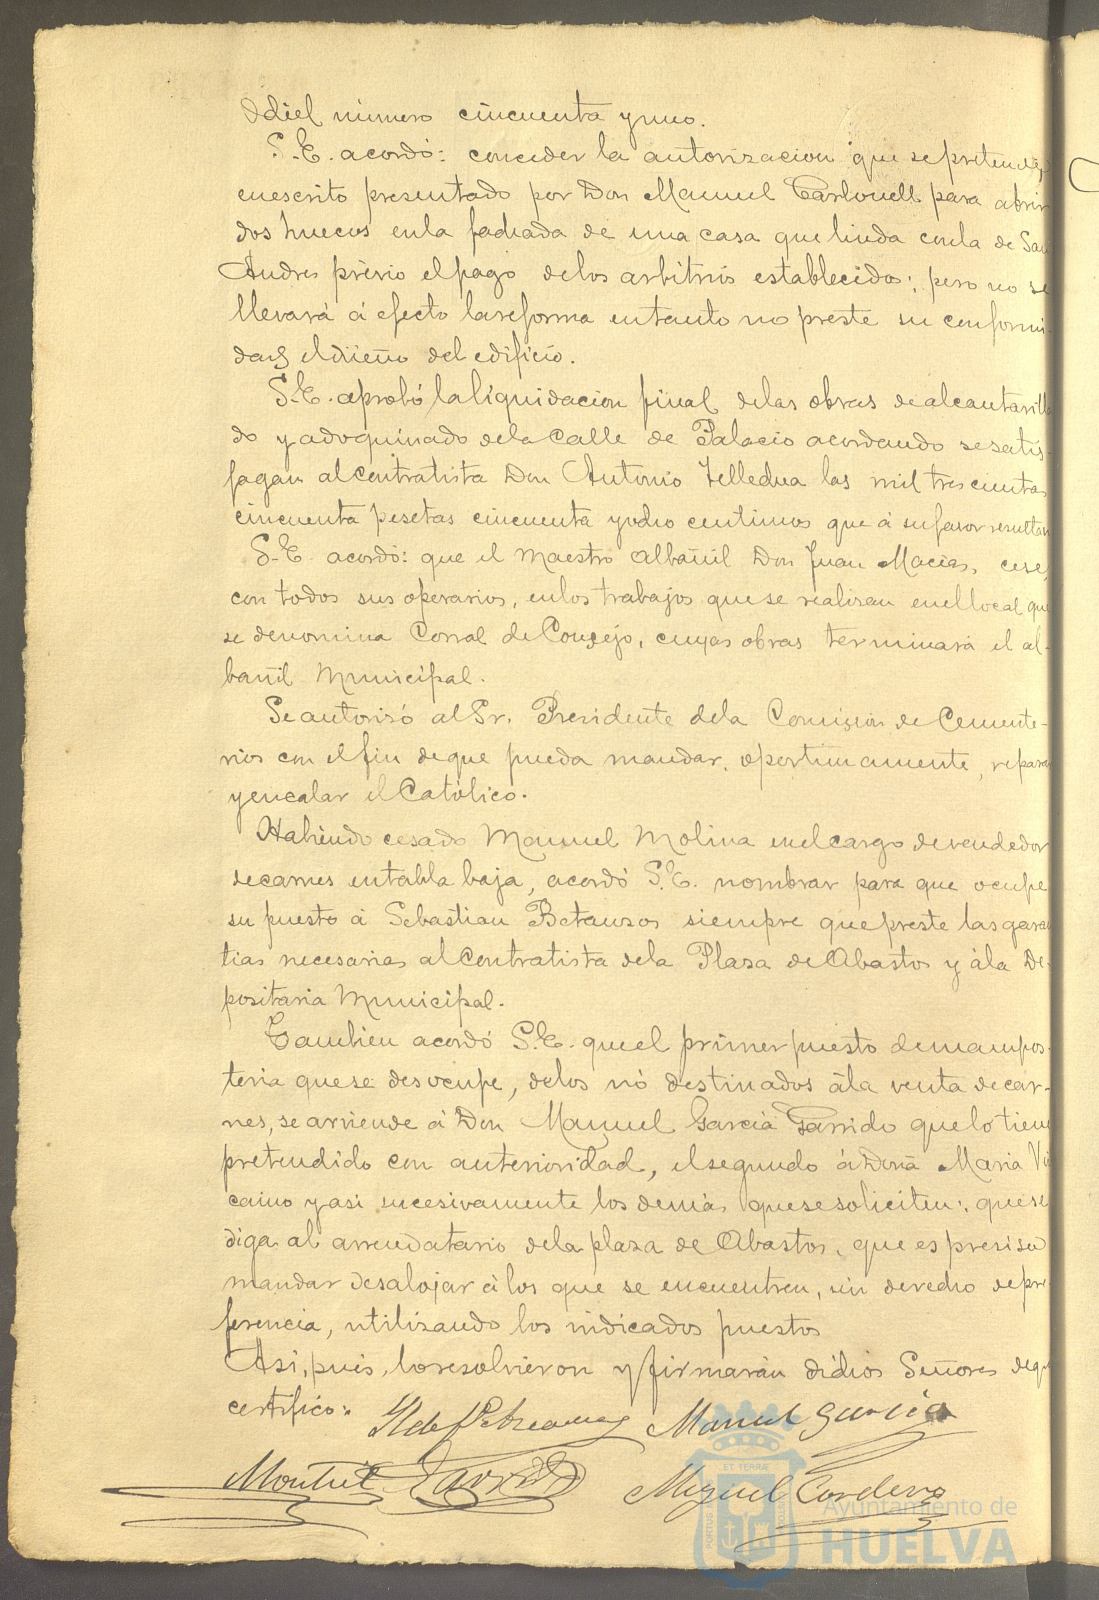 Odiel número cincuenta y uno.
S.E. acordó: conceder la autorizacion que se pretende,
en escrito presentado por Don Manuel Carbonell para abrir
dos huecos en la fachada de una casa que linda con la de San
Andres prévio el pago de los arbitrios establecidos; pero no se
llevará á efecto la reforma en tanto no preste su conformi-
dad el dueño del edificio.
S.E. aprobó la liquidacion final de las obras de alcantarilla
do y adoquinado de la Calle de Palacio acordando se satis-
fagan al contratista Don Antonio las mil trescientas
cincuenta pesetas cincuenta y ocho centimos que á su favor resultan
S.E. acordó: que el Maestro Albañil Don Juan Macias, cese,
con todos sus operarios, en los trabajos que se realizan en el local que
se denomina Corral de Concejo, cuyas obras terminará el al-
bañil Municipal.
Se autorizó al Sr. Presidente de la Comision de Cemente-
rios con el fin de que pueda mandar, oportunamente, reparar
y encalar el Católico.
Habiendo cesado Manuel Molina en el cargo de vendedor
de carnes en tabla baja, acordó S.E. nombrar para que ocupe
su puesto á Sebastian Betanzos siempre que preste las garan
tias necesarias al Contratista de la Plaza de Abastos y á la De-
positaria Municipal.
Tambien acordó S.E. que el primer puesto de mampos-
teria que se desocupe, de los nó destinados á la venta de car-
nes, se arriende á Don Manuel Garcia Garrido que lo tiene
pretendido con anterioridad, el segundo á Doña Maria Viz
caino y asi sucesivamente los demás que se soliciten; que se
diga al arrendatario de la plaza de Abastos, que es preciso
mandar desalojar á los que se encuentren, sin derecho de pre-
ferencia, utilizando los indicados puestos
Asi, pues, lo resolvieron y firmarán dichos Señores de que
certifico:
Manuel Garcia
Montiel
Miguel Cordero
ET TERRÆ
PORTUS
CUSTODIA
Ayuntamiento de
HUELVA